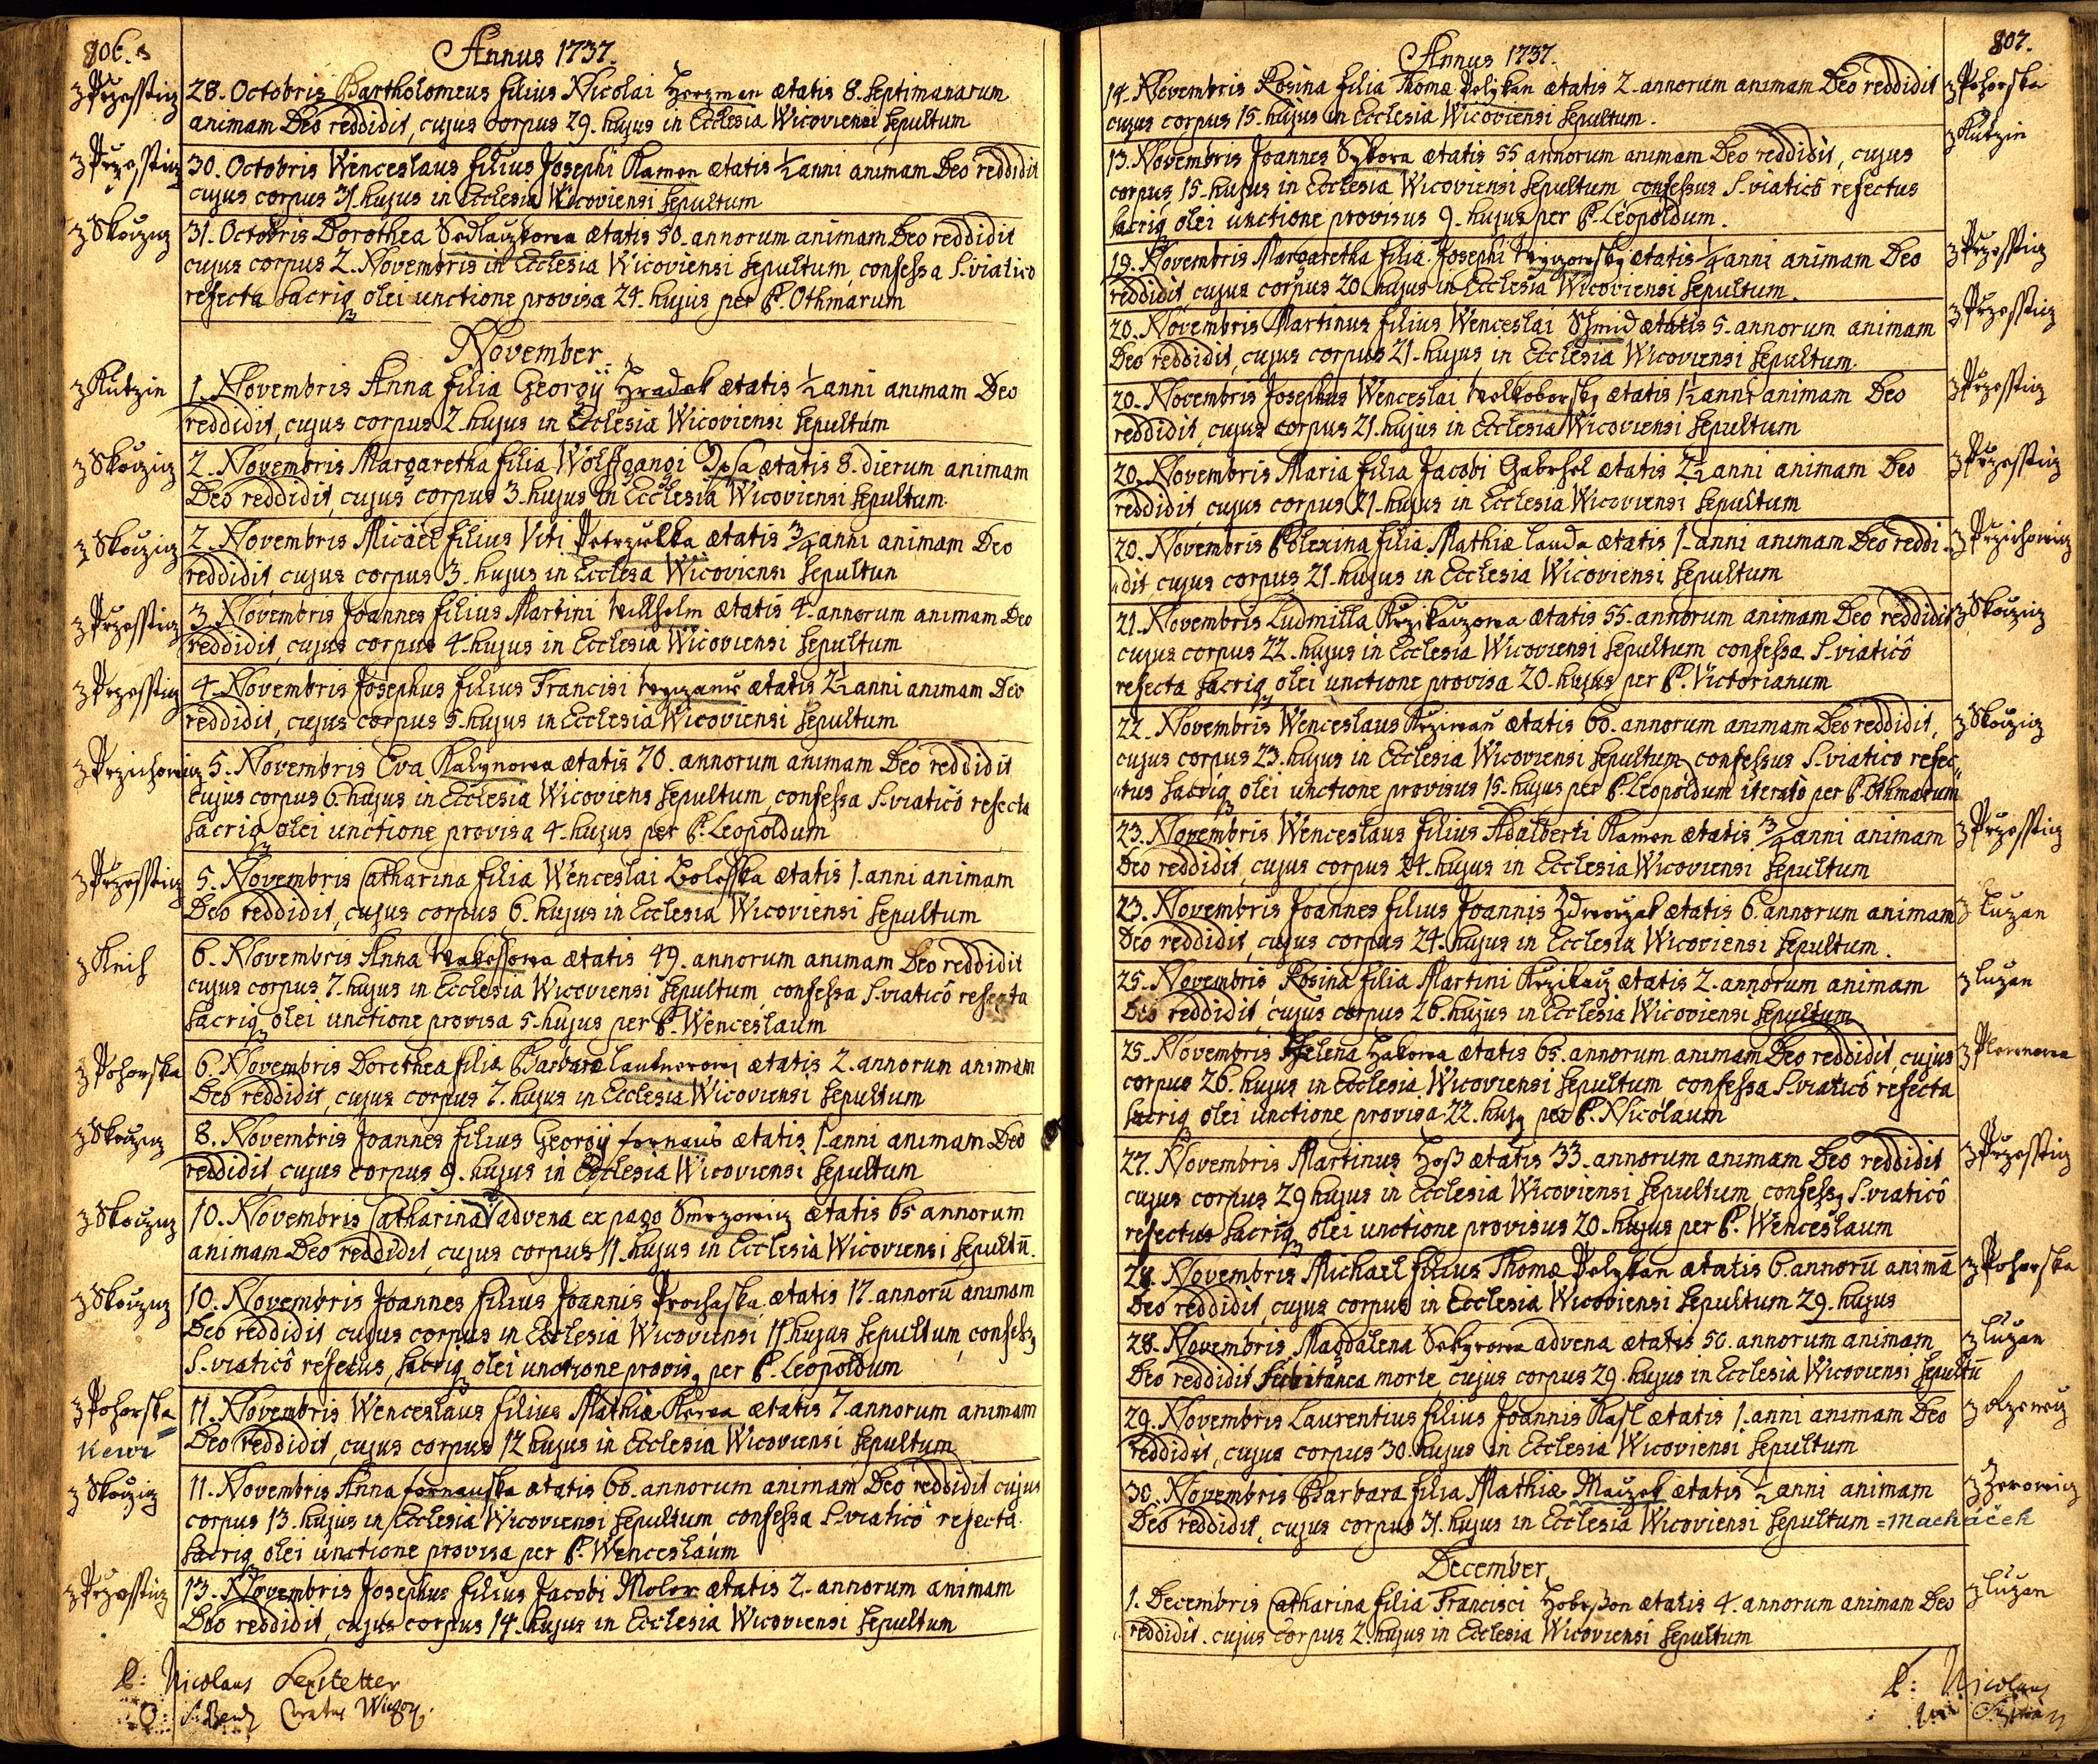 806.
Annus 1737.
z Przesstiz 28. Octobris Bartholomeus filius Nicolai Herzman ætatis 8. septimanarum
animam Deo reddidit, cujus corpus 29. hujus in Ecclesia Wicoviensi sepultum
z Przesstiz 30. Octobris Wenceslaus filius Josephi Kamen ætatis ½ anni animam Deo reddidit
cujus corpus 31. hujus in Ecclesia Wicoviensi sepultum
z Skoczicz 31. Octobris Dorothea Sedlaczkowa ætatis 50. annorum animam Deo reddidit
cujus corpus 2. Novembris in Ecclesia Wicoviensi sepultum, confessa S. viatico
refecta sacriq olei unctione provisa 24. hujus per P. Othmarum
November.
z Kutzin 1. Novembris Anna filia Georgÿ Hradek ætatis ½ anni animam Deo
reddidit, cujus corpus 2. hujus in Ecclesia Wicoviensi sepultum
z Skoczicz 2. Novembris Margaretha filia Wolffgangi ætatis 8. dierum animam
Deo reddidit, cujus corpus 3. hujus in Ecclesia Wicoviensi sepultum.
z Skoczicz 2. Novembris Micael filius Viti Petrzielka ætatis ¾ anni animam Deo
reddidit, cujus corpus 3. hujus in Ecclesa Wicoviensi sepultun
z Przesstiz 3. Novembris Joannes filius Martini Willhelm ætatis 4. annorum animam Deo
reddidit, cujus corpus 4. hujus in Ecclesia Wicoviensi sepultum
z Przesstiz 4. Novembris Josephus filius Francisi ætatis 2½ anni animam Deo
reddidit, cujus corpus 5. hujus in Ecclesia Wicoviensi sepultum
z Przichowicz 5. Novembris Eva Kalynowa ætatis 70. annorum animam Deo reddidit
cujus corpus 6. hujus in Ecclesia Wicoviens sepultum, confessa S. viaticô refecta
sacriq olei unctione provisa 4. hujus per P. Leopoldum
z Przesstiz 5. Novembris Catharina filia Wenceslai Bolesska ætatis 1. anni animam
Deo reddidit, cujus corpus 6. hujus in Ecclesia Wicoviensi sepultum
z Knih 6. Novembris Anna Wakessowa ætatis 49. annorum animam Deo reddidit
cujus corpus 7. hujus in Ecclesia Wicoviensi sepultum, confessa S. viaticô refecta
sacriq olei unctione provisa 5. hujus per P. Wenceslaum
z Pohorska 6. Novembris Dorethea filia Barbaræ Lautnerowy ætatis 2. annorum animam
Deo reddidit, cujus corpus 7. hujus in Ecclesia Wicoviensi sepultum
z Skoczicz 8. Novembris Joannes filius Georgÿ Fornaus ætatis 1. anni animam Deo
reddidit, cujus corpus 9. hujus in Ecclesia Wicoviensi sepultum
z Skoczicz 10. Novembris Catharina advena ex pago Smrzowicz ætatis 65 annorum
animam Deo reddidit, cujus corpus 11. hujus in Ecclesia Wicoviensi sepultū.
z Skoczicz 10. Novembris Joannes filius Joannis Prochaska ætatis 17. annorū animam
Deo reddidit cujus corpus in Ecclesia Wicoviensi 11. hujus sepultum, confess9
S. viaticô refectus, sacriq olei unctione provis9 per P. Leopoldum
z Pohorska 11. Novembris Wenceslaus filius Mathiæ Kewa ætatis 7. annorum animam
Kewi Deo reddidit, cujus corpus 12 hujus in Ecclesia Wicoviensi sepultum
z Skoczicz 11. Novembris Anna Fornauska ætatis 60. annorum animam Deo reddidit cujus
corpus 13. hujus in Ecclesia Wicoviensi sepultum, confessa S. viaticô refecta
sacriq olei unctione provisa per P. Wenceslaum
z Przesstiz 13. Novembris Josephus filius Jacobi Moler ætatis 2. annorum animam
Deo reddidit, cujus corpus 14. hujus in Ecclesia Wicoviensi sepultum
P: Nicolaus
Curatus
807.
Annus 1737.
14. Novembris Rosina filia Thomæ Pelykan ætatis 2. annorum animam Deo reddidit z Pohorska
cujus corpus 15. hujus in Ecclesia Wicoviensi sepultum.
13. Novembris Joannes Sykora ætatis 55 annorum animam Deo reddidit, cujus z Kutzin
corpus 15. hujus in Ecclesia Wicoviensi sepultum confessus S. viaticô refectus
sacriq olei unctione provisus 9. hujus per P. Leopoldum.
19. Novembris Margaretha filia Josephi ætatis ¼ anni animam Deo z Przesstiz
reddidit, cujus corpus 20. hujus in Ecclesia Wicoviensi sepultum.
20. Novembris Martinus filius Wenceslai Schmid ætatis 5. annorum animam z Przesstiz
Deo reddidit, cujus corpus 21. hujus in Ecclesia Wicoviensi sepultum.
20. Novembris Josephus Wenceslai Welkoborsky ætatis 1½ anni animam Deo z Przesstiz
reddidit, cujus corpus 21. hujus in Ecclesia Wicoviensi sepultum
20. Novembris Maria filia Jacobi Gabrhel ætatis 2½ anni animam Deo z Przesstiz
reddidit, cujus corpus 21. hujus in Ecclesia Wicoviensi sepultum
20. Novembris Polexina filia Mathiæ Lauda ætatis 1. anni animam Deo reddi- z Przichowicz
dit, cujus corpus 21. hujus in Ecclesia Wicoviensi sepultum
21. Novembris Ludmilla Krzikaczowa ætatis 55. annorum animam Deo reddidit z Skoczicz
cujus corpus 22. hujus in Ecclesia Wicoviensi sepultum confessa S. viaticô
refecta sacriq olei unctione provisa 20. hujus per P. Victorianum
22. Novembris Wenceslaus Krziwan ætatis 60. annorum animam Deo reddidit, z Skoczicz
cujus corpus 23. hujus in Ecclesia Wicoviensi sepultum confessus S. viatico refec-
tus sacriq olei unctione provisus 15. hujus per P. Leopoldum iterato per P. Othmarum
23. Novembris Wenceslaus filius Adalberti Kamen ætatis ¾ anni animam z Przesstiz
Deo reddidit, cujus corpus 24. hujus in Ecclesia Wicoviensi sepultum
23. Novembris Joannes filius Joannis Zdworzak ætatis 6. annorum animam z Luzan
Deo reddidit, cujus corpus 24. hujus in Ecclesia Wicoviensi sepultum.
25. Novembris Rosina filia Martini Krzikacz ætatis 2. annorum animam z Luzan
Deo reddidit, cujus corpus 26. hujus in Ecclesia Wicoviensi sepultum
25. Novembris Helena Hakowa ætatis 65. annorum animam Deo reddidit, cujus z Plewnowa
corpus 26. hujus in Ecclesia Wicoviensi sepultum confessa S. viaticô refecta
sacriq olei unctione provisa 22. huj9 per P. Nicolaum
27. Novembris Martinus Hoß ætatis 33. annorum animam Deo reddidit z Przesstiz
cujus corpus 29 hujus in Ecclesia Wicoviensi sepultum, confess9 S. viaticô
refectus sacriq olei unctione provisus 20. hujus per P. Wenceslaum
28. Novembris Michael filius Thomæ Pelykan ætatis 6. annorū animā z Pohorska
Deo reddidit, cujus corpus in Ecclesia Wicoviensi sepultum 29. hujus
28. Novembris Magdalena Sekyrowa advena ætatis 50. annorum animam z Luzan
Deo reddidit subitanea morte, cujus corpus 29. hujus in Ecclesia Wicoviensi sepultū
29. Novembris Laurentius filius Joannis Kasl ætatis 1. anni animam Deo
reddidit, cujus corpus 30. hujus in Ecclesia Wicoviensi sepultum
30. Novembris Barbara filia Mathiæ Maczek ætatis ½ anni animam z Zerowicz
Deo reddidit, cujus corpus 31. hujus in Ecclesia Wicoviensi sepultum = Macháček
December
1. Decembris Catharina filia Francisci Hobrßon ætatis 4. annorum animam Deo z Luzan
reddidit. cujus corpus 2. hujus in Ecclesia Wicoviensi sepultum
P: Nicolaus